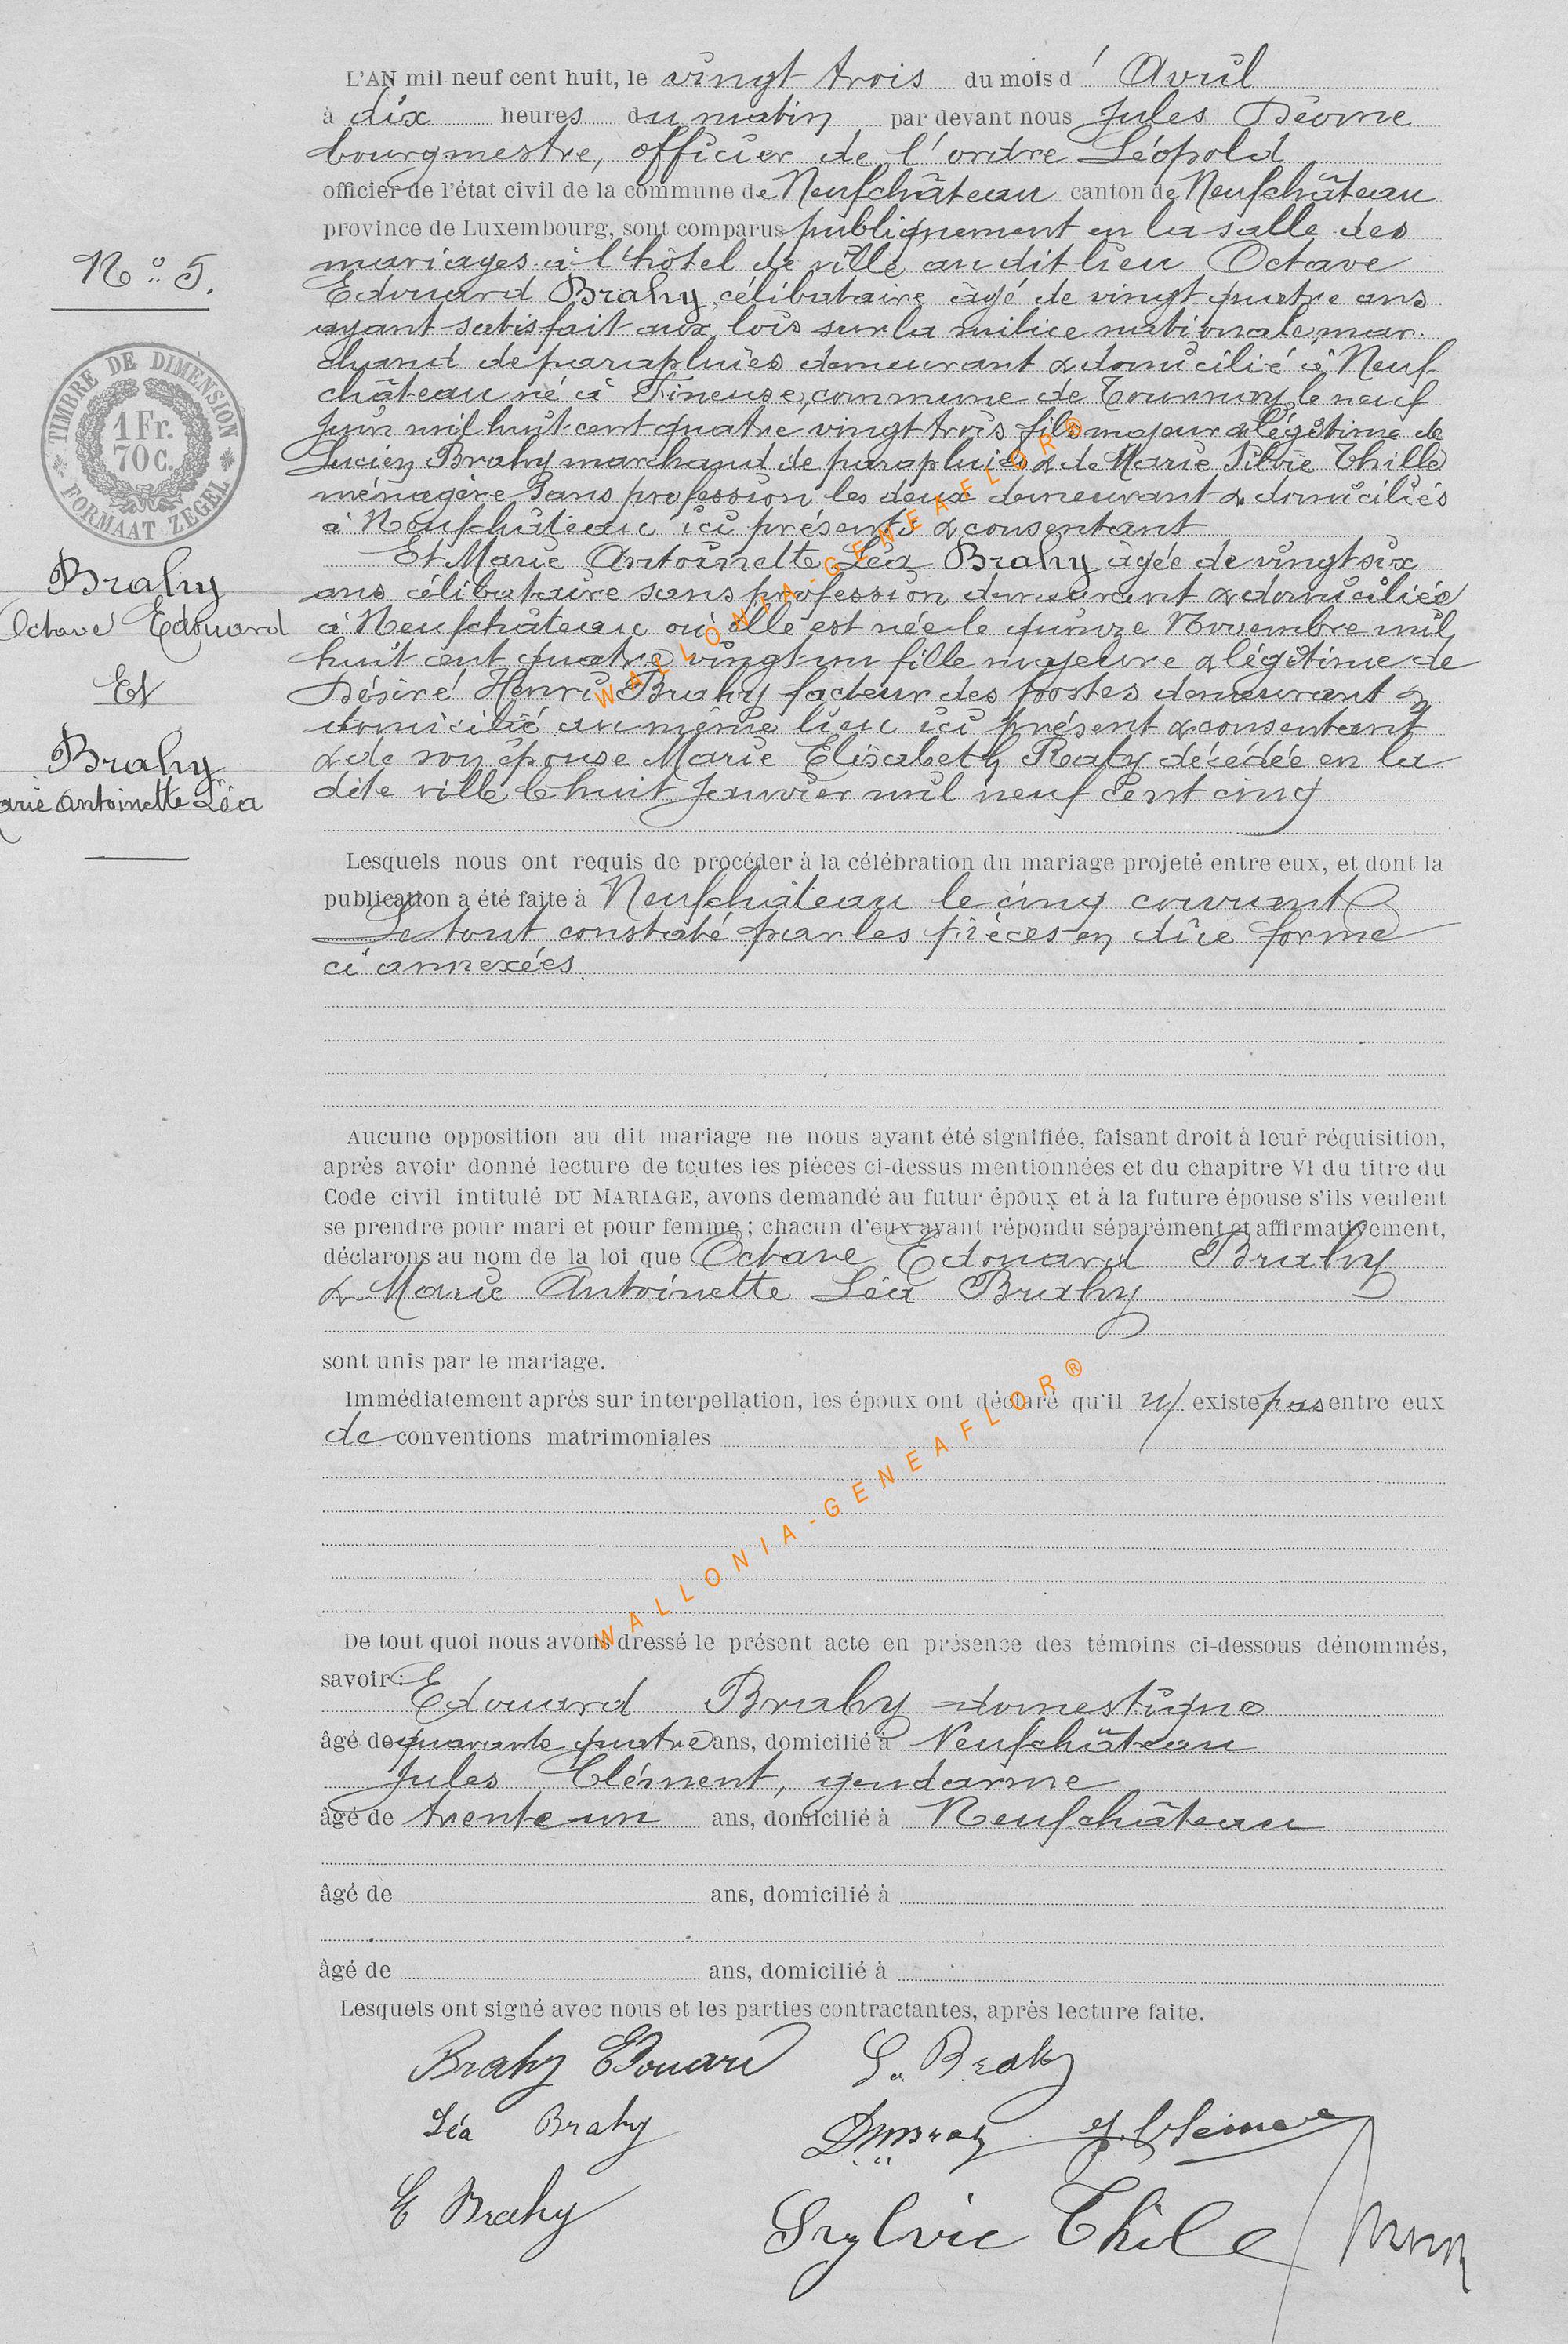 L'AN mil neuf cent huit, le vingt trois du mois d' Avril
à dix heures du matin par devant nous Jules
bourgmestre, officier de l'ordre Léopold
officier de l'état civil de la commune de Neufchâteau canton de Neufchâteau
province de Luxembourg, sont comparus publiquement en la salle des
mariages à l'hôtel de ville au dit lieu Octave
Edouard Brahy, célibataire âgé de vingt quatre ans
ayant satisfait aux lois sur la milice nationale, mar-
chand de parapluies demeurant & domicilié à Neuf-
château né à Tineuse, commune de Tournay le neuf
Juin mil huit cent quatre vingt trois fils majeur & légitime de
Lucien Brahy marchand de parapluies & de Marie Silvie Thille
ménagère sans profession les deux demeurant & domiciliés
à Neufchâteau ici présents & consentant
Et Marie Antoinette Léa Brahy âgée de vingt six
ans célibataire sans profession demeurant & domiciliée
à Neufchâteau où elle est née le quinze Novembre mil
huit cent quatre vingt un fille majeure & légitime de
Désiré Henri Brahy facteur des postes demeurant &
domicilié au même lieu ici présent & consentant
& de son épouse Marie Elisabeth décédée en la
dite ville le huit Janvier mil neuf cent cinq
N° 5.
TIMBRE DE DIMENSION
1 Fr.
70 c.
FORMAAT ZEGEL
Brahy
Octave Edouard
Et
Brahy
arie Antoinette Léa
Lesquels nous ont requis de procéder à la célébration du mariage projeté entre eux, et dont la
publication a été faite à Neufchâteau le cinq courant
Le tout constaté par les pièces en dûe forme
ci annexées.
Aucune opposition au dit mariage ne nous ayant été signifiée, faisant droit à leur réquisition,
après avoir donné lecture de toutes les pièces ci-dessus mentionnées et du chapitre VI du titre du
Code civil intitulé DU MARIAGE, avons demandé au futur époux et à la future épouse s'ils veulent
se prendre pour mari et pour femme ; chacun d'eux ayant répondu séparément et affirmativement,
déclarons au nom de la loi que Octave Edouard Brahy
& Marie Antoinette Léa Brahy
sont unis par le mariage.
Immédiatement après sur interpellation, les époux ont déclaré qu'il n' existe pas entre eux
de conventions matrimoniales
De tout quoi nous avons dressé le présent acte en présence des témoins ci-dessous dénommés,
savoir : Edouard Brahy domestique
âgé de quarante quatre ans, domicilié à Neufchâteau
Jules Clément, gendarme
âgé de trente un ans, domicilié à Neufchâteau
âgé de ans, domicilié à
âgé de ans, domicilié à
Lesquels ont signé avec nous et les parties contractantes, après lecture faite.
Brahy Edouard L. Brahy
Léa Brahy
E Brahy Sylvie Thile
WALLONIA-GENEAFLOR®
WALLONIA-GENEAFLOR®